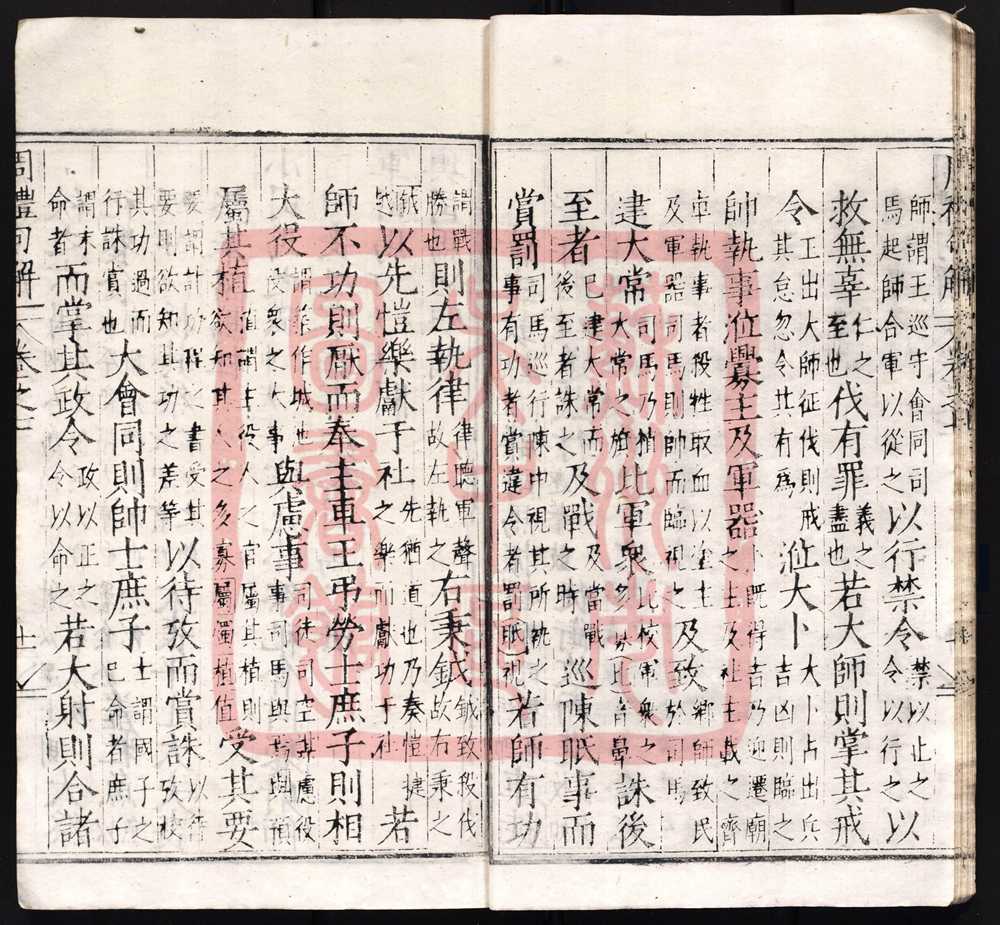 師謂王巡守會同司馬起師合軍以從之以行禁令禁以止之令以行之以
救無辜仁之至也伐有罪義之盡也若大師則掌其戒
令王出大師征伐則戒令其怠忽令其有爲涖大卜大卜占出兵吉凶則臨之
帥執事涖釁主及軍器卜既得吉乃迎遷廟之主及社主載之齊
車執事者殺牲取血以塗主及軍器司馬則帥而臨視之及致鄉師致民於司馬
建大常司馬乃大常之旂比軍衆比校軍衆之多寡比音鼻誅後
至者已建大常而後至者誅之及戰及當戰之時巡陳眂事而
賞罰司馬巡行陳中視其所執之事有功者賞違令者罰眂視若師有功
謂戰勝也則左執律律聽軍聲故左執之右秉鉞鉞致殺伐故右秉之
鉞越以先愷樂獻于社先猶道也乃奏愷捷之樂而獻功于社若
師不功則厭而奉主車王弔勞士庶子則相
大役謂築作城也役衆之大事與慮事司徒司空其慮役事司馬與焉與預
屬其植植謂主役人之官屬其植則欲知其人之多寡屬濁植值受其要
要謂計功程之書受其要則欲知其功之差等以待攷而賞誅以待攷校
其功過而行誅賞也大會同則帥士庶子士謂國子之已命者庶子
謂未命者而掌其政令政以正之令以命之若大射則合諸
周禮句解 卷之七 十一